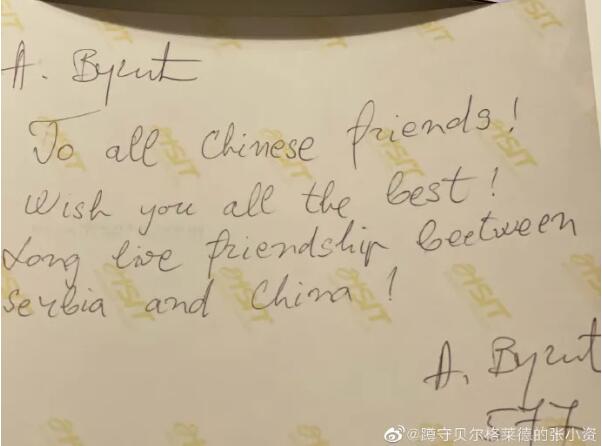 А. Вучић
To all Chinese friends!
Wish you all the best!
Long live friendship beetween
Serbia and China!
А. Вучић
@蹲守贝尔格莱德的张小资